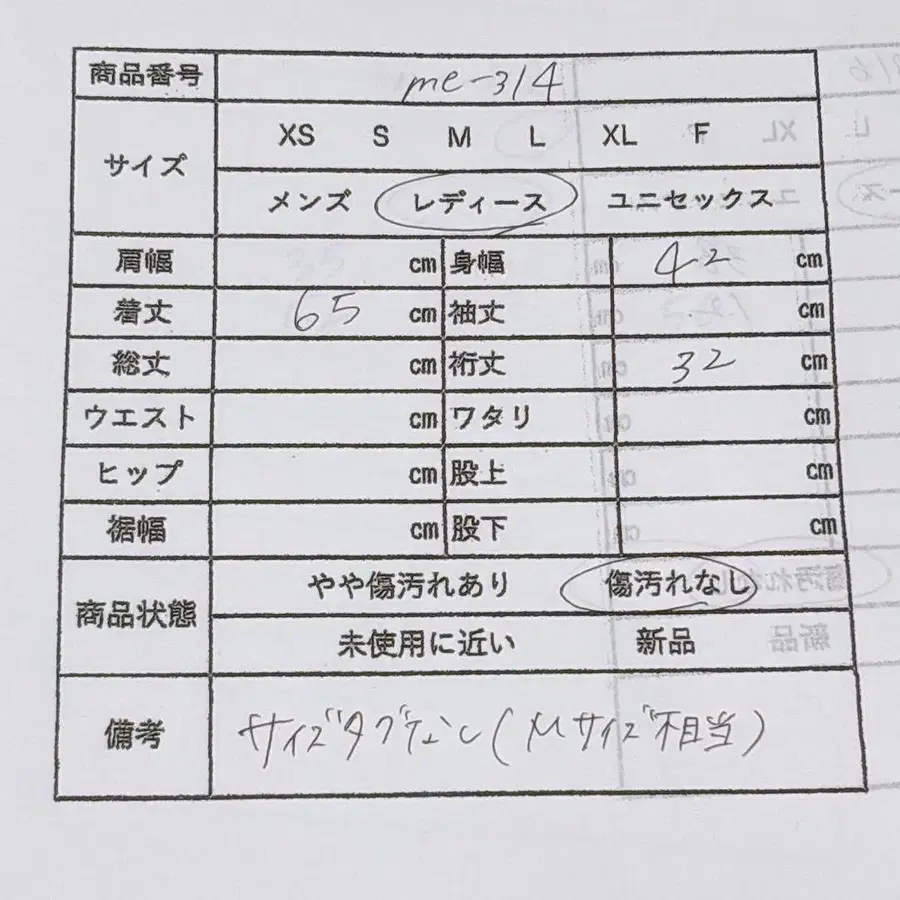 商品番号 me-314
サイズ XS S M L XL F
メンズ レディース ユニセックス
肩幅 cm 身幅 42 cm
着丈 65 cm 袖丈 cm
総丈 cm 裄丈 32 cm
ウエスト cm ワタリ cm
ヒップ cm 股上 cm
裾幅 cm 股下 cm
商品状態 やや傷汚れあり 傷汚れなし
未使用に近い 新品
備考 サイズタグなし(Mサイズ相当)